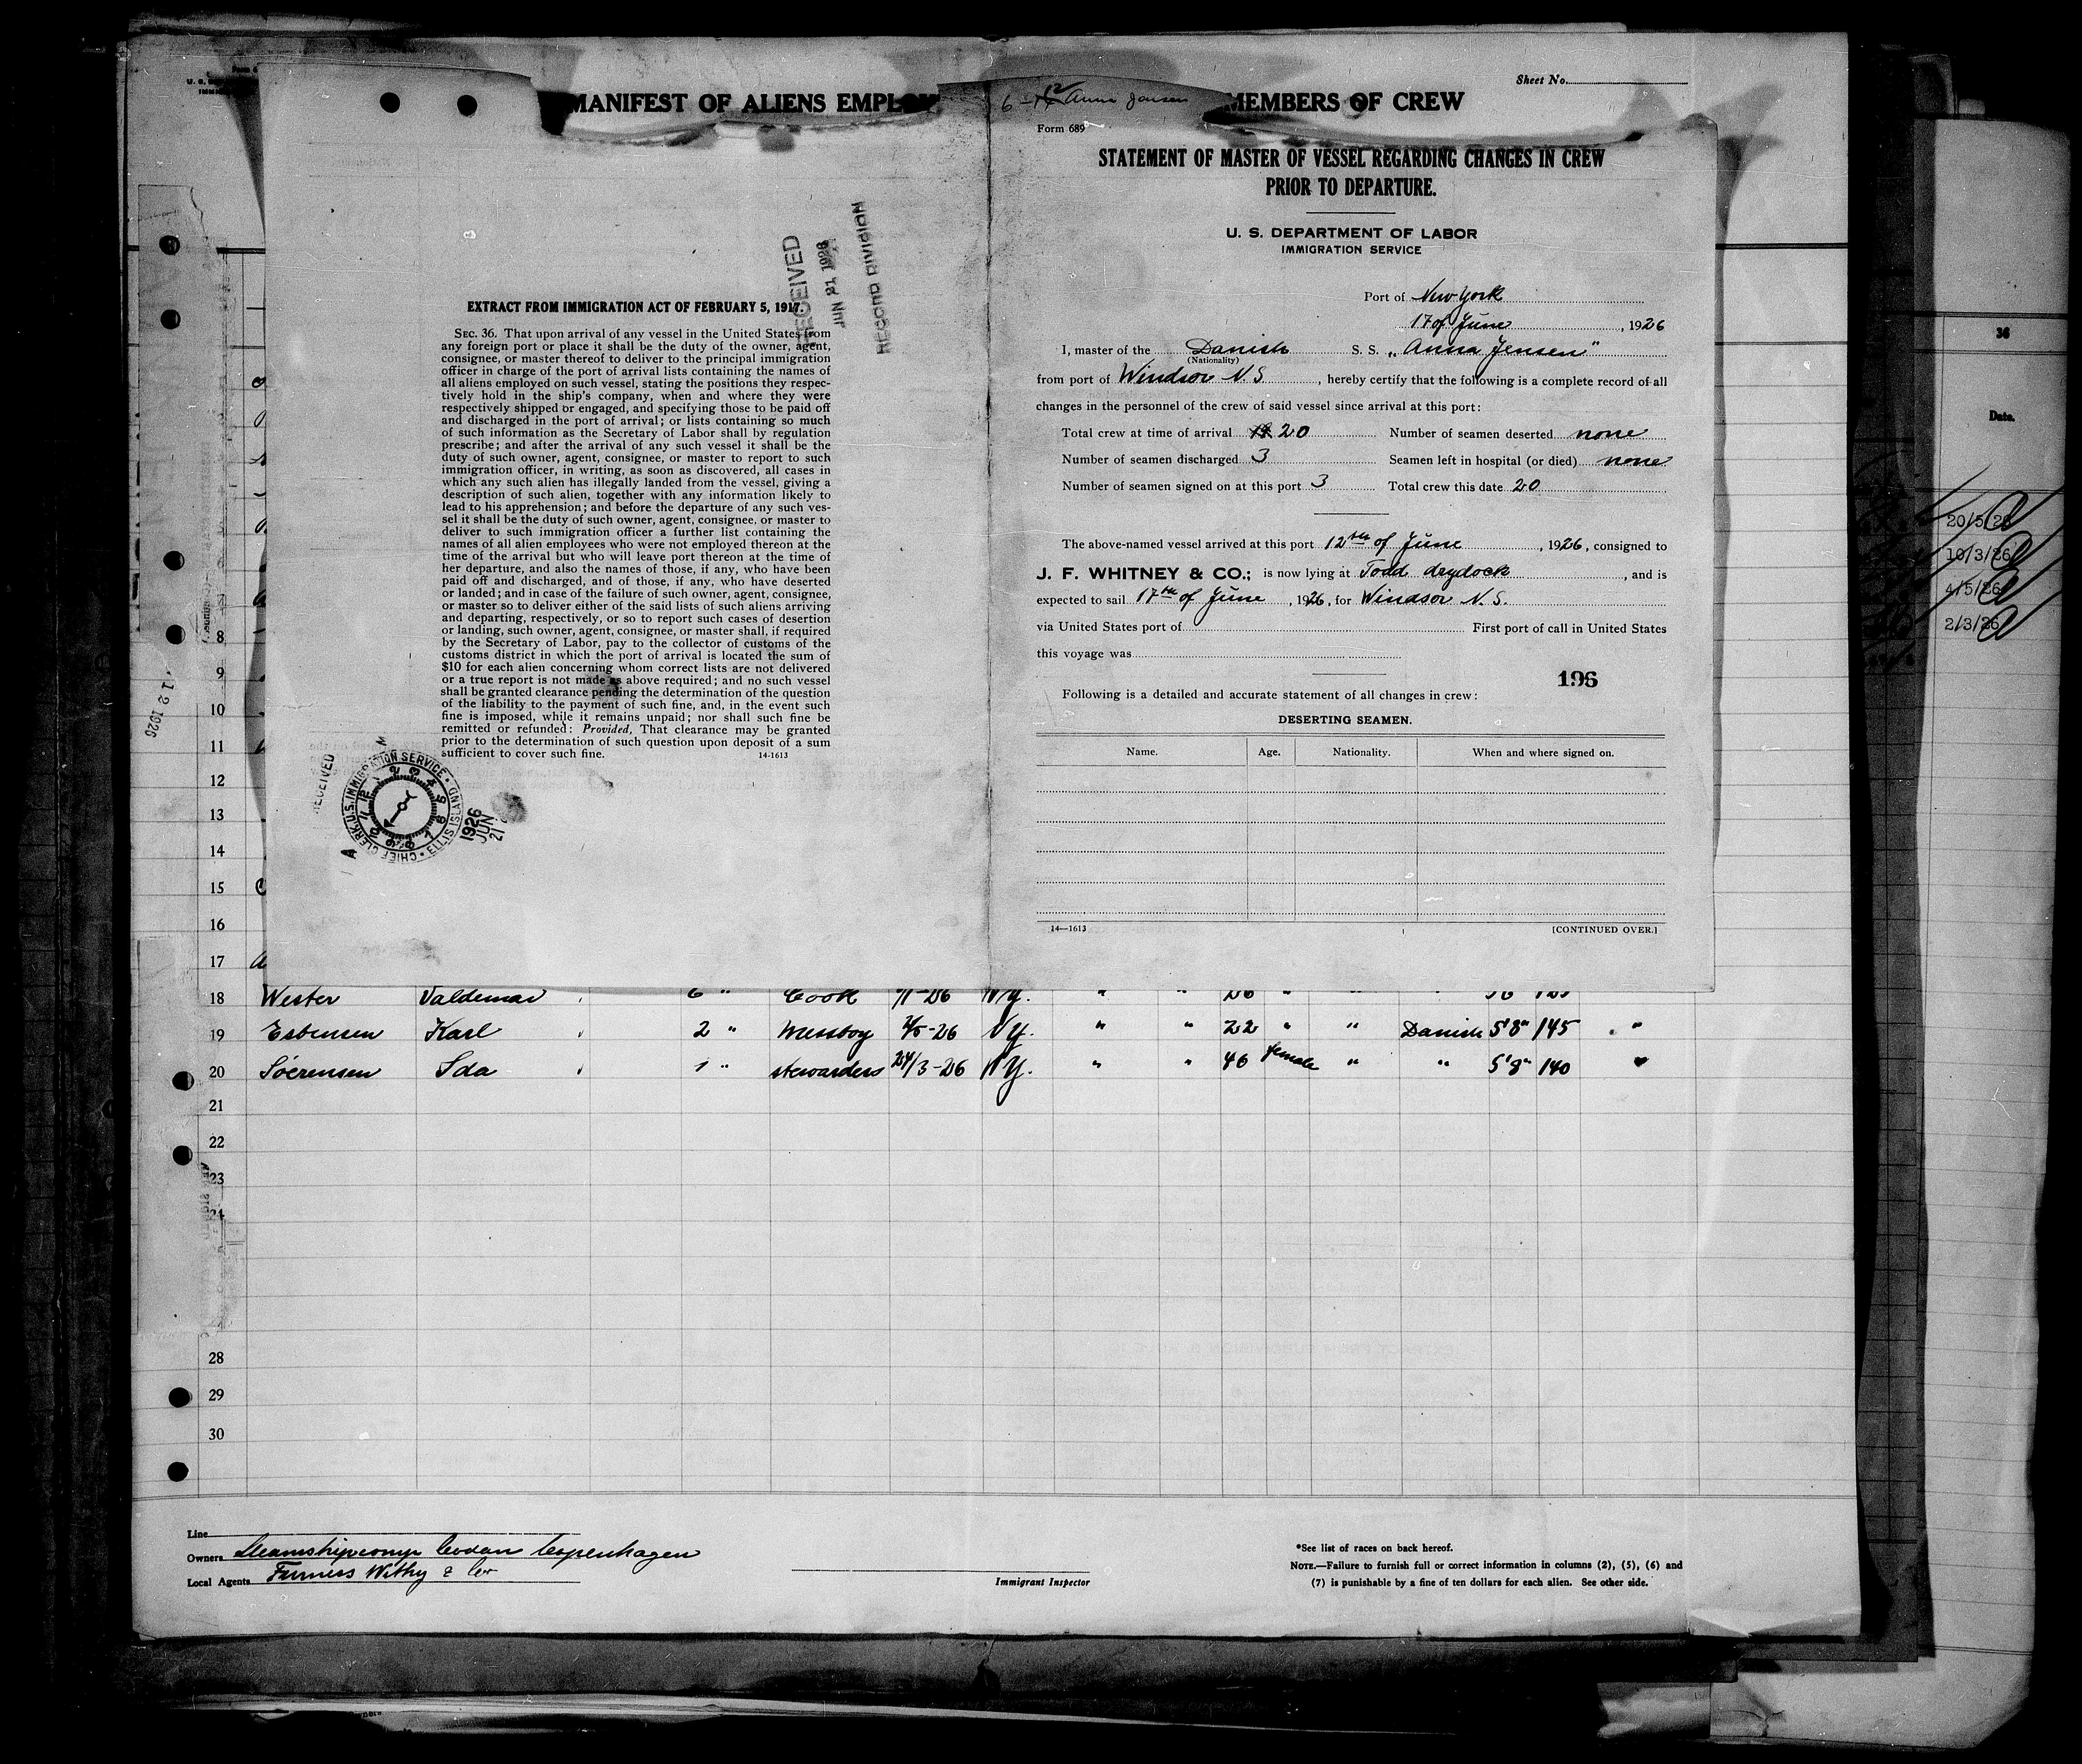 Sheet No.
MANIFEST OF ALIENS
MEMBERS OF CREW
6 - 12 Anna Jensen
Form 689
STATEMENT OF MASTER OF VESSEL REGARDING CHANGES IN CREW
PRIOR TO DEPARTURE.
U. S. DEPARTMENT OF LABOR
IMMIGRATION SERVICE
Port of New York
17 of June, 1926
I, master of the Danish S. S. „Anna Jensen"
(Nationality)
from port of Windsor N S, hereby certify that the following is a complete record of all
changes in the personnel of the crew of said vessel since arrival at this port:
Total crew at time of arrival 20 Number of seamen deserted none
Number of seamen discharged 3 Seamen left in hospital (or died) none
Number of seamen signed on at this port 3 Total crew this date 20
The above-named vessel arrived at this port 12th of June, 1926, consigned to
J. F. WHITNEY & CO.; is now lying at Todd drydock, and is
expected to sail 17th of June, 1926, for Windsor N. S.
via United States port of First port of call in United States
this voyage was
196
Following is a detailed and accurate statement of all changes in crew:
DESERTING SEAMEN.
Name. Age. Nationality. When and where signed on.
14—1613 [CONTINUED OVER.]
RECEIVED
JUN 21 1926
RECORD DIVISION
EXTRACT FROM IMMIGRATION ACT OF FEBRUARY 5, 1917.
SEC. 36. That upon arrival of any vessel in the United States from
any foreign port or place it shall be the duty of the owner, agent,
consignee, or master thereof to deliver to the principal immigration
officer in charge of the port of arrival lists containing the names of
all aliens employed on such vessel, stating the positions they respec-
tively hold in the ship's company, when and where they were
respectively shipped or engaged, and specifying those to be paid off
and discharged in the port of arrival; or lists containing so much
of such information as the Secretary of Labor shall by regulation
prescribe; and after the arrival of any such vessel it shall be the
duty of such owner, agent, consignee, or master to report to such
immigration officer, in writing, as soon as discovered, all cases in
which any such alien has illegally landed from the vessel, giving a
description of such alien, together with any information likely to
lead to his apprehension; and before the departure of any such ves-
sel it shall be the duty of such owner, agent, consignee, or master to
deliver to such immigration officer a further list containing the
names of all alien employees who were not employed thereon at the
time of the arrival but who will leave port thereon at the time of
her departure, and also the names of those, if any, who have been
paid off and discharged, and of those, if any, who have deserted
or landed; and in case of the failure of such owner, agent, consignee,
or master so to deliver either of the said lists of such aliens arriving
and departing, respectively, or so to report such cases of desertion
or landing, such owner, agent, consignee, or master shall, if required
by the Secretary of Labor, pay to the collector of customs of the
customs district in which the port of arrival is located the sum of
$10 for each alien concerning whom correct lists are not delivered
or a true report is not made as above required; and no such vessel
shall be granted clearance pending the determination of the question
of the liability to the payment of such fine, and, in the event such
fine is imposed, while it remains unpaid; nor shall such fine be
remitted or refunded: Provided, That clearance may be granted
prior to the determination of such question upon deposit of a sum
sufficient to cover such fine. 14-1613
RECEIVED
CHIEF CLERK. U.S. IMMIGRATION SERVICE • ELLIS ISLAND
1926
JUN
21
36
Date.
20/5/26
10/3/26
4/5/26
2/3/26
8
9
10
11
12
13
14
15
16
17
18 Wester Valdemar 6 " Cook N.Y. " " 26 " "
19 Esbensen Karl 2 " Messboy 2/5-26 N.Y. " " 22 " " Danish 5'8" 145 "
20 Soerensen Ida 1 " stewardess 24/3-26 N.Y. " " 46 female " " 5'8" 140 "
21
22
23
24
28
29
30
Line
Owners Steamshipcomp Codan Copenhagen
Local Agents Furness Withy & Co
Immigrant Inspector
*See list of races on back hereof.
NOTE.—Failure to furnish full or correct information in columns (2), (5), (6) and
(7) is punishable by a fine of ten dollars for each alien. See other side.